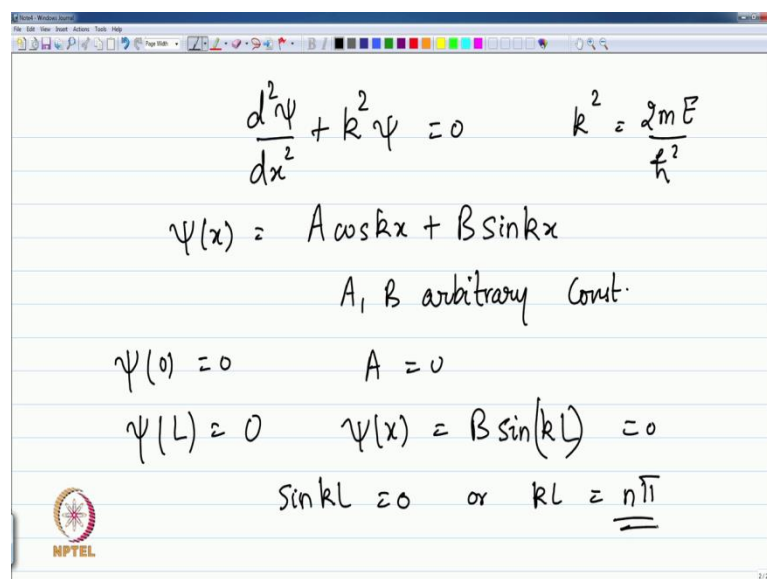 Note4 - Windows Journal
File Edit View Insert Actions Tools Help
Page Width
d²ψ/dx² + k²ψ = 0 k² = 2mE/ħ²
ψ(x) = A cos kx + B sin kx
A, B arbitrary const.
ψ(0) = 0 A = 0
ψ(L) = 0 ψ(x) = B sin(kL) = 0
sin kL = 0 or kL = nπ
NPTEL